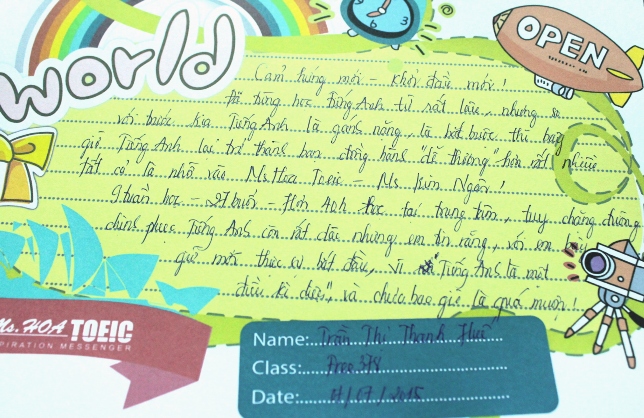 world
OPEN
Cảm hứng mới - Khởi đầu mới!
Đã từng học Tiếng Anh từ rất lâu, nhưng so
với trước kia Tiếng Anh là gánh nặng, là bắt buộc thì bây
giờ Tiếng Anh lại trở thành bạn đồng hành "dễ thương" hơn rất nhiều
Tất cả là nhờ vào Ms Hoa Toeic - Ms. Kim Ngân!
9 tuần học - 27 buổi - Tiếng Anh học tại trung tâm, tuy chặng đường
chinh phục Tiếng Anh còn rất dài nhưng em tin rằng, với em bây
giờ mới thực sự bắt đầu, vì "Tiếng Anh là một
điều kì diệu", và chưa bao giờ là quá muộn!
Ms. HOA TOEIC
PIRATION MESSENGER
Name: Trần Thị Thanh Huế
Class: Pree 374
Date: 17/07/2015